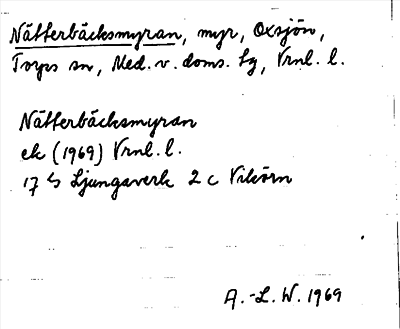 Nätterbäcksmyran, myr, Oxsjön,
Torps sn, Med. v. doms. tg, Vrnl. l.
Nätterbäcksmyran
ek (1969) Vrnl. l.
17 G Ljungaverk 2 c Vikörn
A.-L. W. 1969